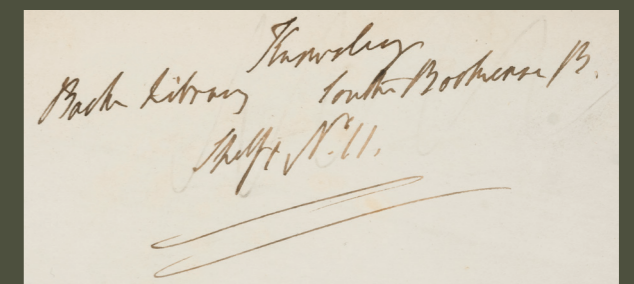 Knowsley
Back Library South Bookcase B.
Shelf N.º 11.